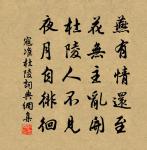 燕有情還至
花無主亂開
杜陵人不見
夜月自徘徊
寇準杜陵詞典網集